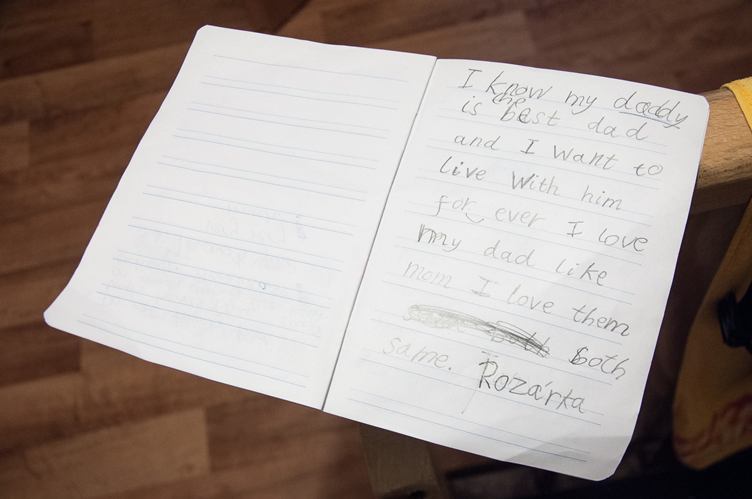 I know my daddy
is the best dad
and I want to
live with him
for ever I love
my dad like
mom I love them
both
same. Rozárka